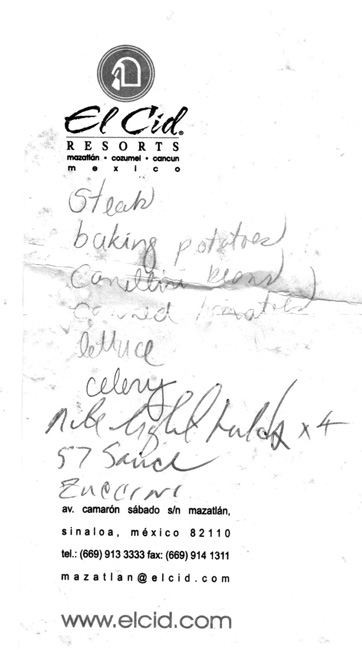 El Cid®
RESORTS
mazatlán • cozumel • cancun
mexico
Steak
baking potatoes
Canellini beans
canned tomatoes
lettuce
celery
x 4
57 Sauce
Zuccini
av. camarón sábado s/n mazatlán,
sinaloa, méxico 82110
tel.: (669) 913 3333 fax: (669) 914 1311
mazatlan@elcid.com
www.elcid.com